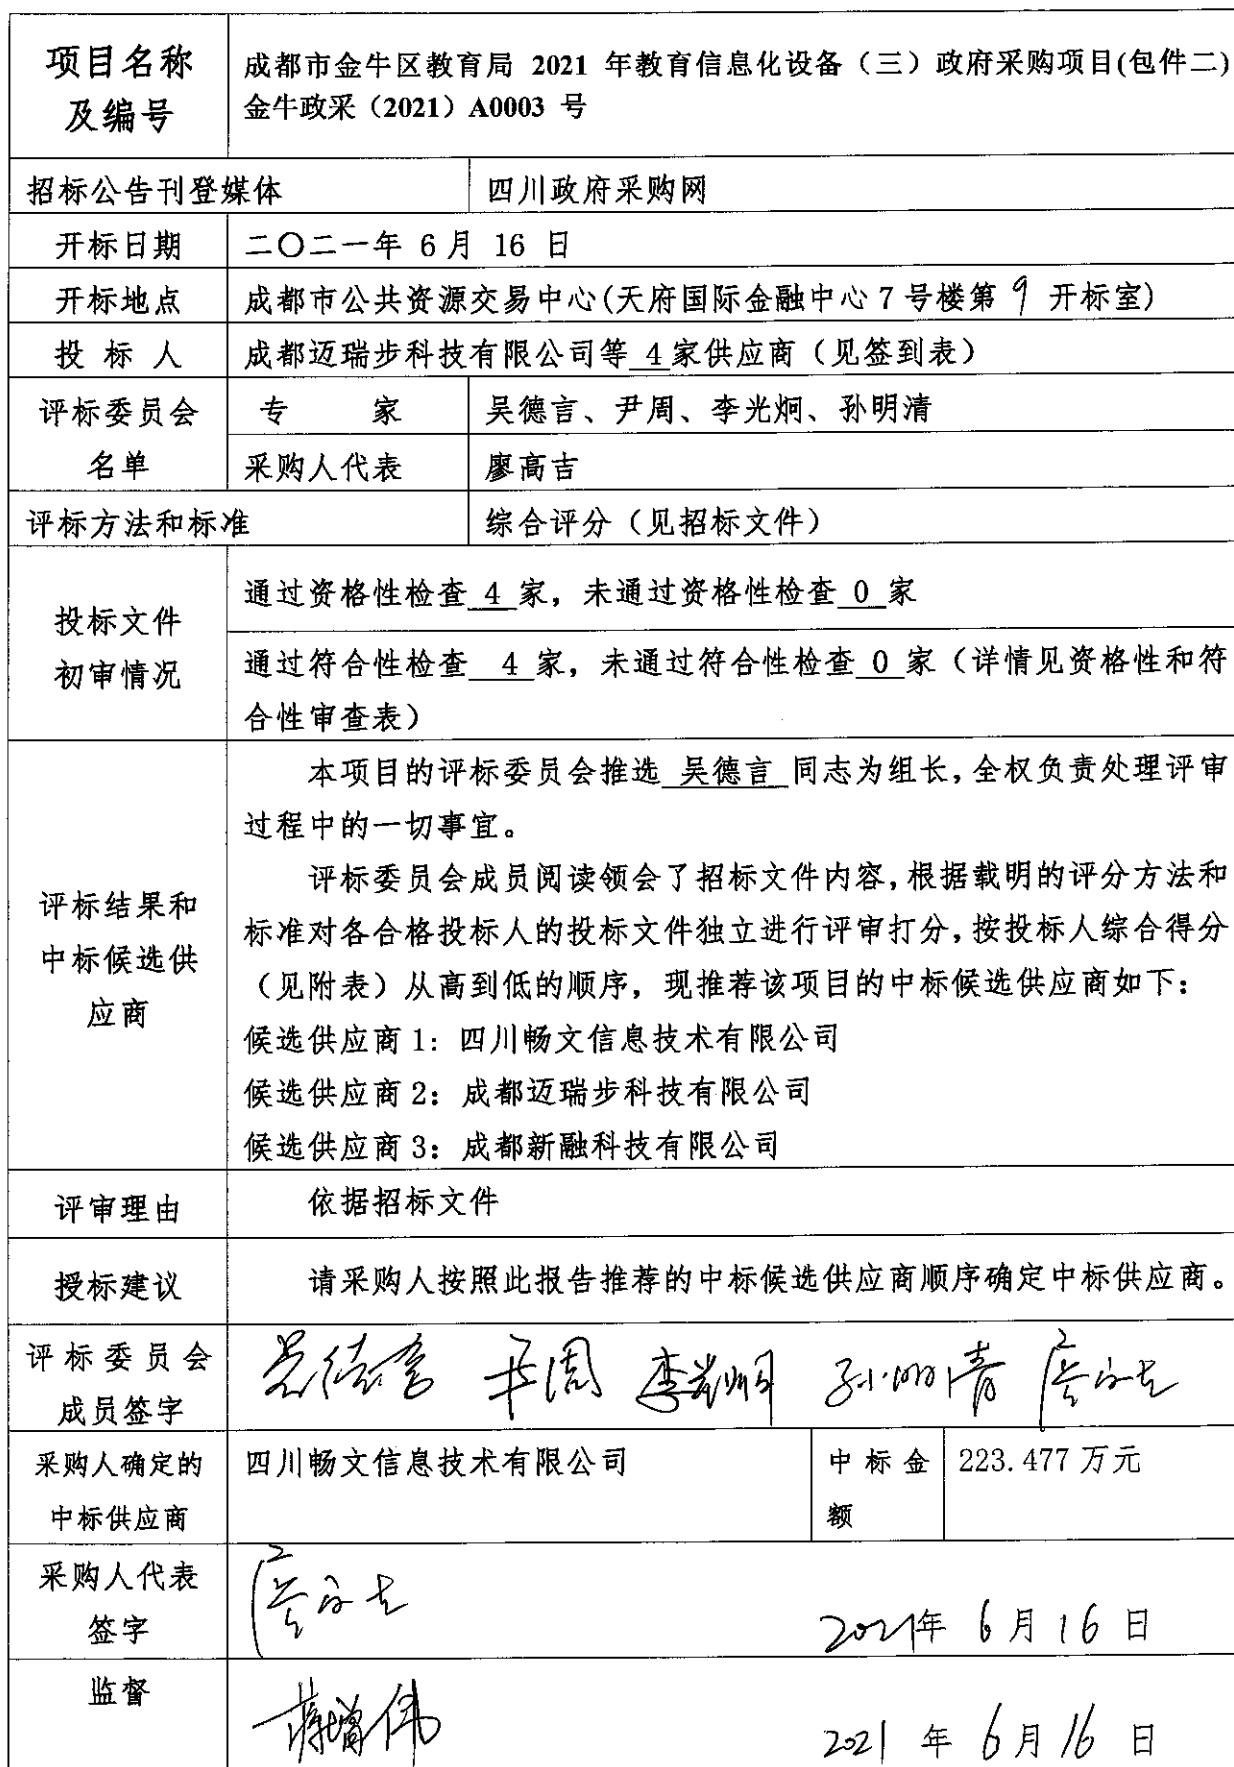 项目名称
及编号
成都市金牛区教育局 2021 年教育信息化设备（三）政府采购项目(包件二)
金牛政采（2021）A0003 号
招标公告刊登媒体
四川政府采购网
开标日期
二〇二一年 6月 16 日
开标地点
成都市公共资源交易中心(天府国际金融中心7号楼第 9 开标室)
投 标 人
成都迈瑞步科技有限公司等 4 家供应商（见签到表）
评标委员会
名单
专 家
吴德言、尹周、李光炯、孙明清
采购人代表
廖高吉
评标方法和标准
综合评分（见招标文件）
投标文件
初审情况
通过资格性检查 4 家，未通过资格性检查 0 家
通过符合性检查 4 家，未通过符合性检查 0 家（详情见资格性和符
合性审查表）
评标结果和
中标候选供
应商
本项目的评标委员会推选 吴德言 同志为组长，全权负责处理评审
过程中的一切事宜。
评标委员会成员阅读领会了招标文件内容，根据载明的评分方法和
标准对各合格投标人的投标文件独立进行评审打分，按投标人综合得分
（见附表）从高到低的顺序，现推荐该项目的中标候选供应商如下：
候选供应商1：四川畅文信息技术有限公司
候选供应商2：成都迈瑞步科技有限公司
候选供应商3：成都新融科技有限公司
评审理由
依据招标文件
授标建议
请采购人按照此报告推荐的中标候选供应商顺序确定中标供应商。
评标委员会
成员签字
吴德言 尹周 李光炯 孙明清 廖高吉
采购人确定的
中标供应商
四川畅文信息技术有限公司
中标金
额
223.477万元
采购人代表
签字
廖高吉
2021年 6月16日
监督
蒋增伟
2021 年 6月16日